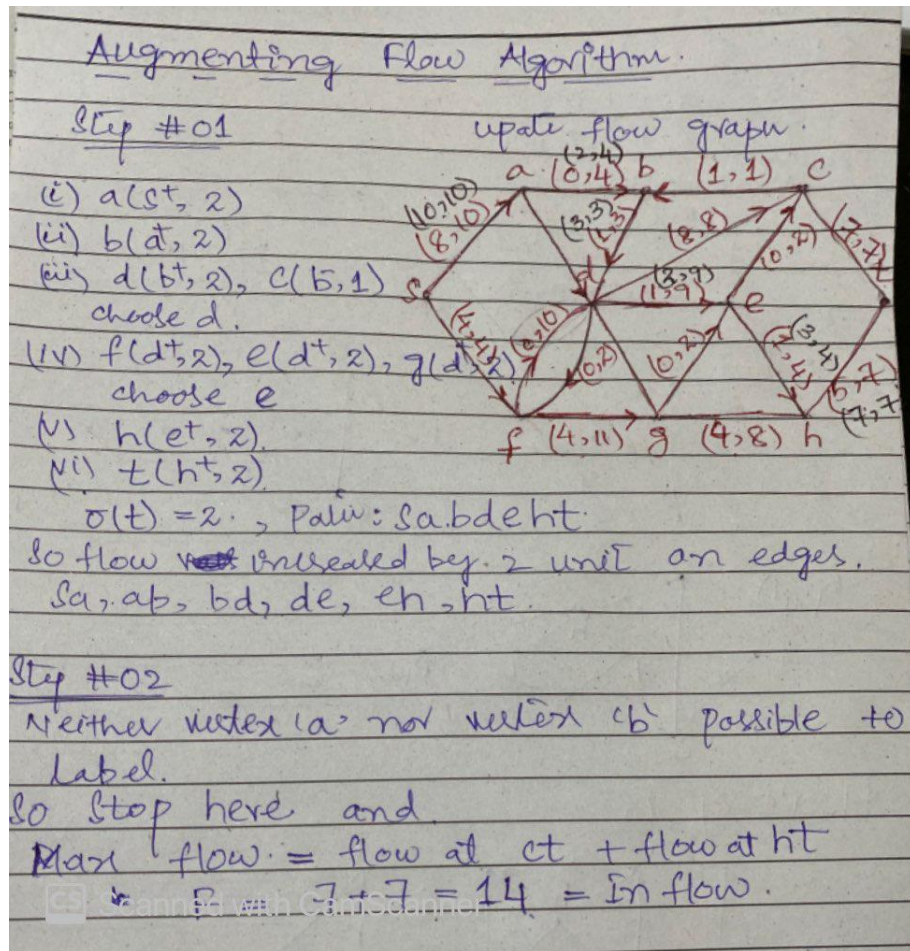 Augmenting Flow Algorithm.
Step #01
upate flow graph.
(i) a(s+, 2)
(ii) b(a+, 2)
(iii) d(b+, 2), c(b-, 1)
choose d.
(iv) f(d+, 2), e(d+, 2), g(d-, 2)
choose e
(v) h(e+, 2)
(vi) t(h+, 2)
σ(t) = 2. , Path: Sabdeht.
So flow increased by 2 unit an edges.
Sa, ab, bd, de, eh, ht.
a (2,4) b c
(0,4) (1,1)
(10,10) (3,3)
(8,10) (1,3) (8,8) (0,2) (7,7)
S d (3,9) e
(1,9)
(4,4) (0,10) (0,2) (0,2) (3,4)
(1,4) (5,7)
(7,7)
f (4,11) g (4,8) h
Step #02
Neither vertex 'a' nor vertex 'b' possible to
Label.
So Stop here and
Max flow = flow at ct + flow at ht
7+7 = 14 = In flow.
CS Scanned with CamScanner